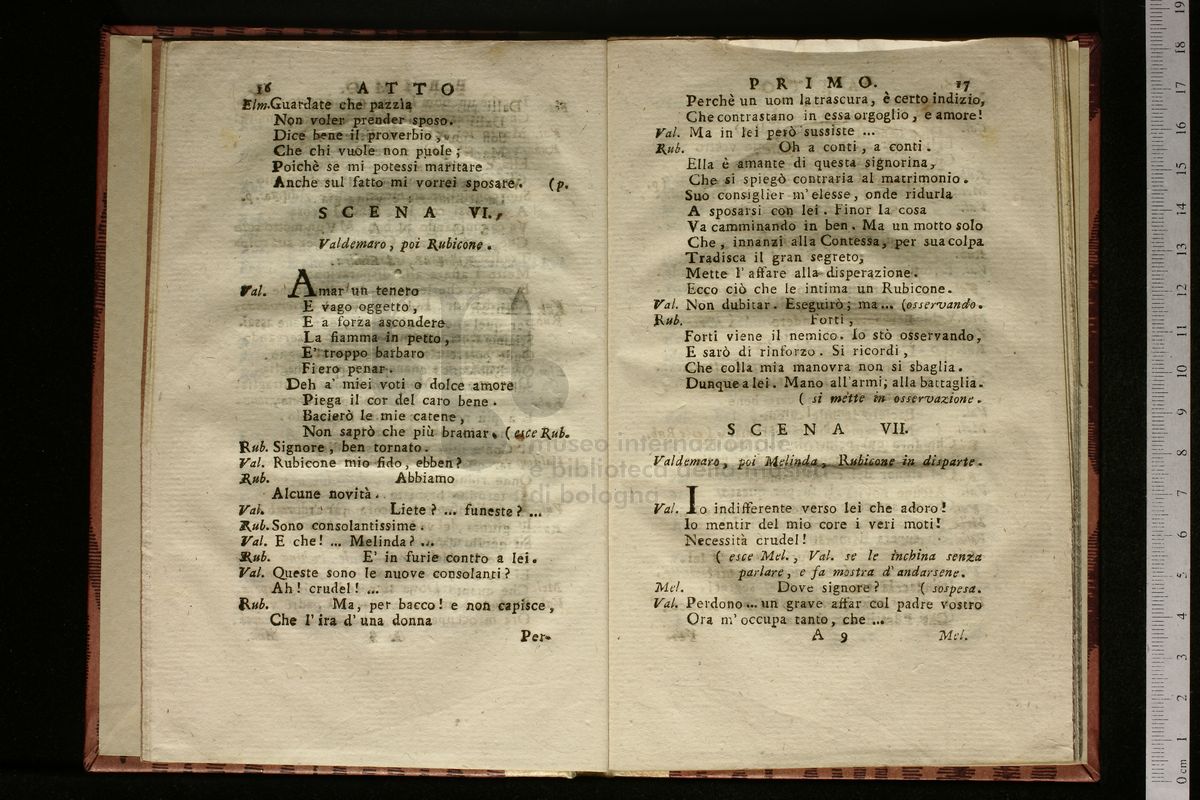 16 ATTO
Elm. Guardate che pazzia
Non voler prender sposo.
Dice bene il proverbio,
Che chi vuole non puole;
Poichè se mi potessi maritare
Anche sul fatto mi vorrei sposare. (p.
SCENA VI.
Valdemaro, poi Rubicone.
Val. Amar un tenero
E vago oggetto,
E a forza ascondere
La fiamma in petto,
E' troppo barbaro
Fiero penar.
Deh a' miei voti o dolce amore
Piega il cor del caro bene.
Bacierò le mie catene,
Non saprò che più bramar. (esce Rub.
Rub. Signore, ben tornato.
Val. Rubicone mio fido, ebben?
Rub. Abbiamo
Alcune novità.
Val. Liete? ... funeste? ...
Rub. Sono consolantissime.
Val. E che! ... Melinda? ...
Rub. E' in furie contro a lei.
Val. Queste sono le nuove consolanti?
Ah! crudel! ...
Rub. Ma, per bacco! e non capisce,
Che l'ira d'una donna
Per-
PRIMO. 17
Perchè un uom la trascura, è certo indizio,
Che contrastano in essa orgoglio, e amore!
Val. Ma in lei però sussiste ...
Rub. Oh a conti, a conti.
Ella è amante di questa signorina,
Che si spiegò contraria al matrimonio.
Suo consiglier m'elesse, onde ridurla
A sposarsi con lei. Finor la cosa
Va camminando in ben. Ma un motto solo
Che, innanzi alla Contessa, per sua colpa
Tradisca il gran segreto,
Mette l'affare alla disperazione.
Ecco ciò che le intima un Rubicone.
Val. Non dubitar. Eseguirò; ma... (osservando.
Rub. Forti,
Forti viene il nemico. Io stò osservando,
E sarò di rinforzo. Si ricordi,
Che colla mia manovra non si sbaglia.
Dunque a lei. Mano all'armi, alla battaglia.
( si mette in osservazione.
SCENA VII.
Valdemaro, poi Melinda, Rubicone in disparte.
Val. Io indifferente verso lei che adoro!
Io mentir del mio core i veri moti!
Necessità crudel!
( esce Mel., Val. se le inchina senza
parlare, e fa mostra d'andarsene.
Mel. Dove signore? ( sospesa.
Val. Perdono... un grave affar col padre vostro
Ora m'occupa tanto, che ...
A 9 Mel.
museo internazionale
e biblioteca della musica
di bologna
0 cm 1 2 3 4 5 6 7 8 9 10 11 12 13 14 15 16 17 18 19